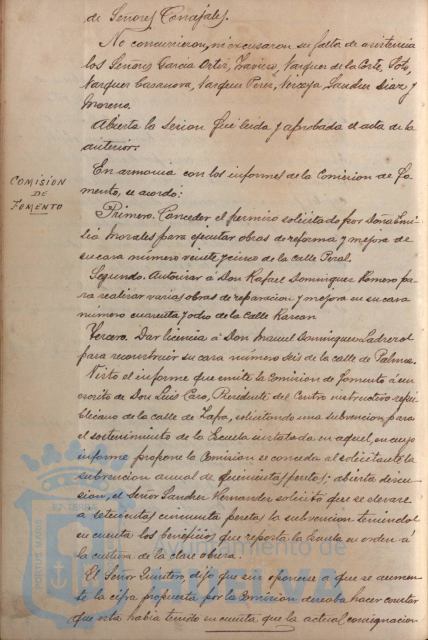 de Señores Concejales.
No concurrieron, ni excusaron su falta de asistencia
los Señores Garcia Ortiz, Vazquez de la Corte, Soto,
Vazquez Casanova, Vazquez Perez, Sanchez Diaz y
Moreno.
Abierta la sesion fué leida y aprobada el acta de la
anterior.
En armonia con los informes de la Comision de Fo-
mento, se acordo:
COMISIÓN
DE
FOMENTO
Primero. Conceder el permiso solicitado por Doña Emi-
lia Morales para ejecutar obras de reforma y mejora de
su casa número veinte y cinco de la calle Peral.
Segundo. Autorizar á Don Rafael Dominguez Romero pa-
ra realizar varias obras de reparacion y mejora en su casa
número cuarenta y ocho de la calle Rascon
Tercero. Dar licencia á Don Manuel Dominguez
para reconstruir su casa número seis de la calle de Palmas.
Visto el informe que emite la Comision de Fomento á un
escrito de Don Luis Caro, Presidente del Centro instructivo repu-
blicano de la calle de Zafra, solicitando una subvencion para
el sostenimiento de la Escuela instalada en aquel, en cuyo
informe propone la Comision se conceda al solicitante la
subvencion anual de quinientas pesetas; abierta discu-
sion, el Señor Sanchez Hernandez solicitó que se elevare
á setecientas cincuenta pesetas la subvencion teniendo
en cuenta los beneficios que reporta la Escuela en orden á
la cultura de la clase obrera.
El Señor Quintero dijo que sin oponerse á que se aumen-
te la cifra propuesta por la Comision deseaba hacer constar
que esta habia tenido en cuenta que la actual consignacion
Ayuntamiento de
HUELVA
PORTUS MARIS